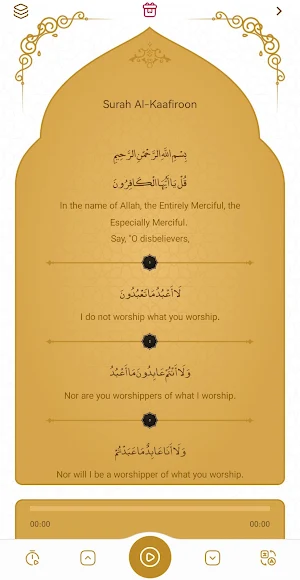 Surah Al-Kaafiroon
بِسْمِ اللَّهِ الرَّحْمَٰنِ الرَّحِيمِ
قُلْ يَا أَيُّهَا الْكَافِرُونَ
In the name of Allah, the Entirely Merciful, the
Especially Merciful.
Say, "O disbelievers,
لَا أَعْبُدُ مَا تَعْبُدُونَ
I do not worship what you worship.
وَلَا أَنْتُمْ عَابِدُونَ مَا أَعْبُدُ
Nor are you worshippers of what I worship.
وَلَا أَنَا عَابِدٌ مَا عَبَدْتُمْ
Nor will I be a worshipper of what you worship.
00:00 00:00